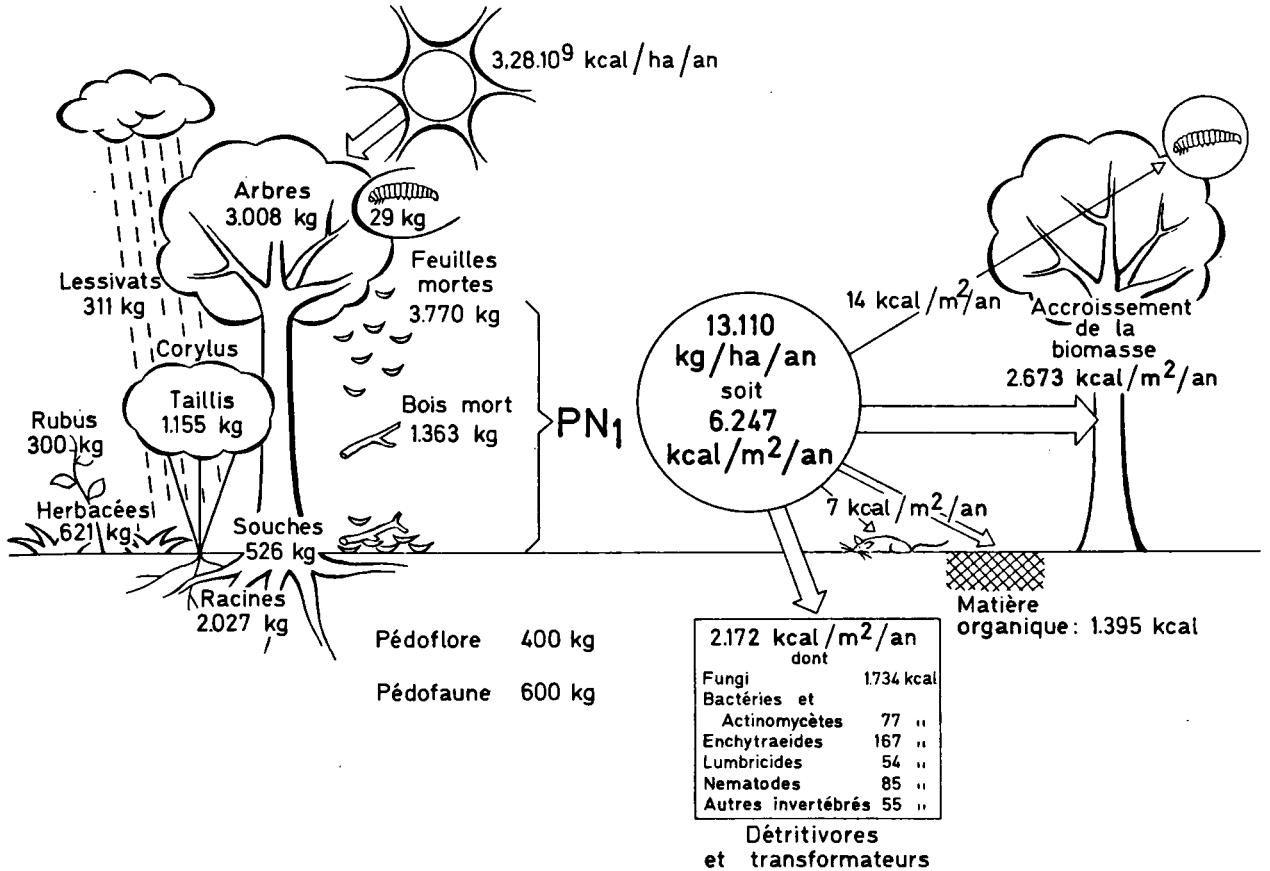 3,28.10⁹ kcal/ha/an
Arbres
3.008 kg
29 kg
Lessivats
311 kg
Feuilles
mortes
3.770 kg
Corylus
Taillis
1.155 kg
Bois mort
1.363 kg
Rubus
300 kg
Herbacées
621 kg
Souches
526 kg
Racines
2.027 kg
Pédoflore 400 kg
Pédofaune 600 kg
PN₁
13.110
kg/ha/an
soit
6.247
kcal/m²/an
14 kcal/m²/an
Accroissement
de la
biomasse
2.673 kcal/m²/an
7 kcal/m²/an
Matière
organique: 1.395 kcal
2.172 kcal/m²/an
dont
Fungi 1.734 kcal
Bactéries et
Actinomycètes 77 "
Enchytraeides 167 "
Lumbricides 54 "
Nematodes 85 "
Autres invertébrés 55 "
Détritivores
et transformateurs